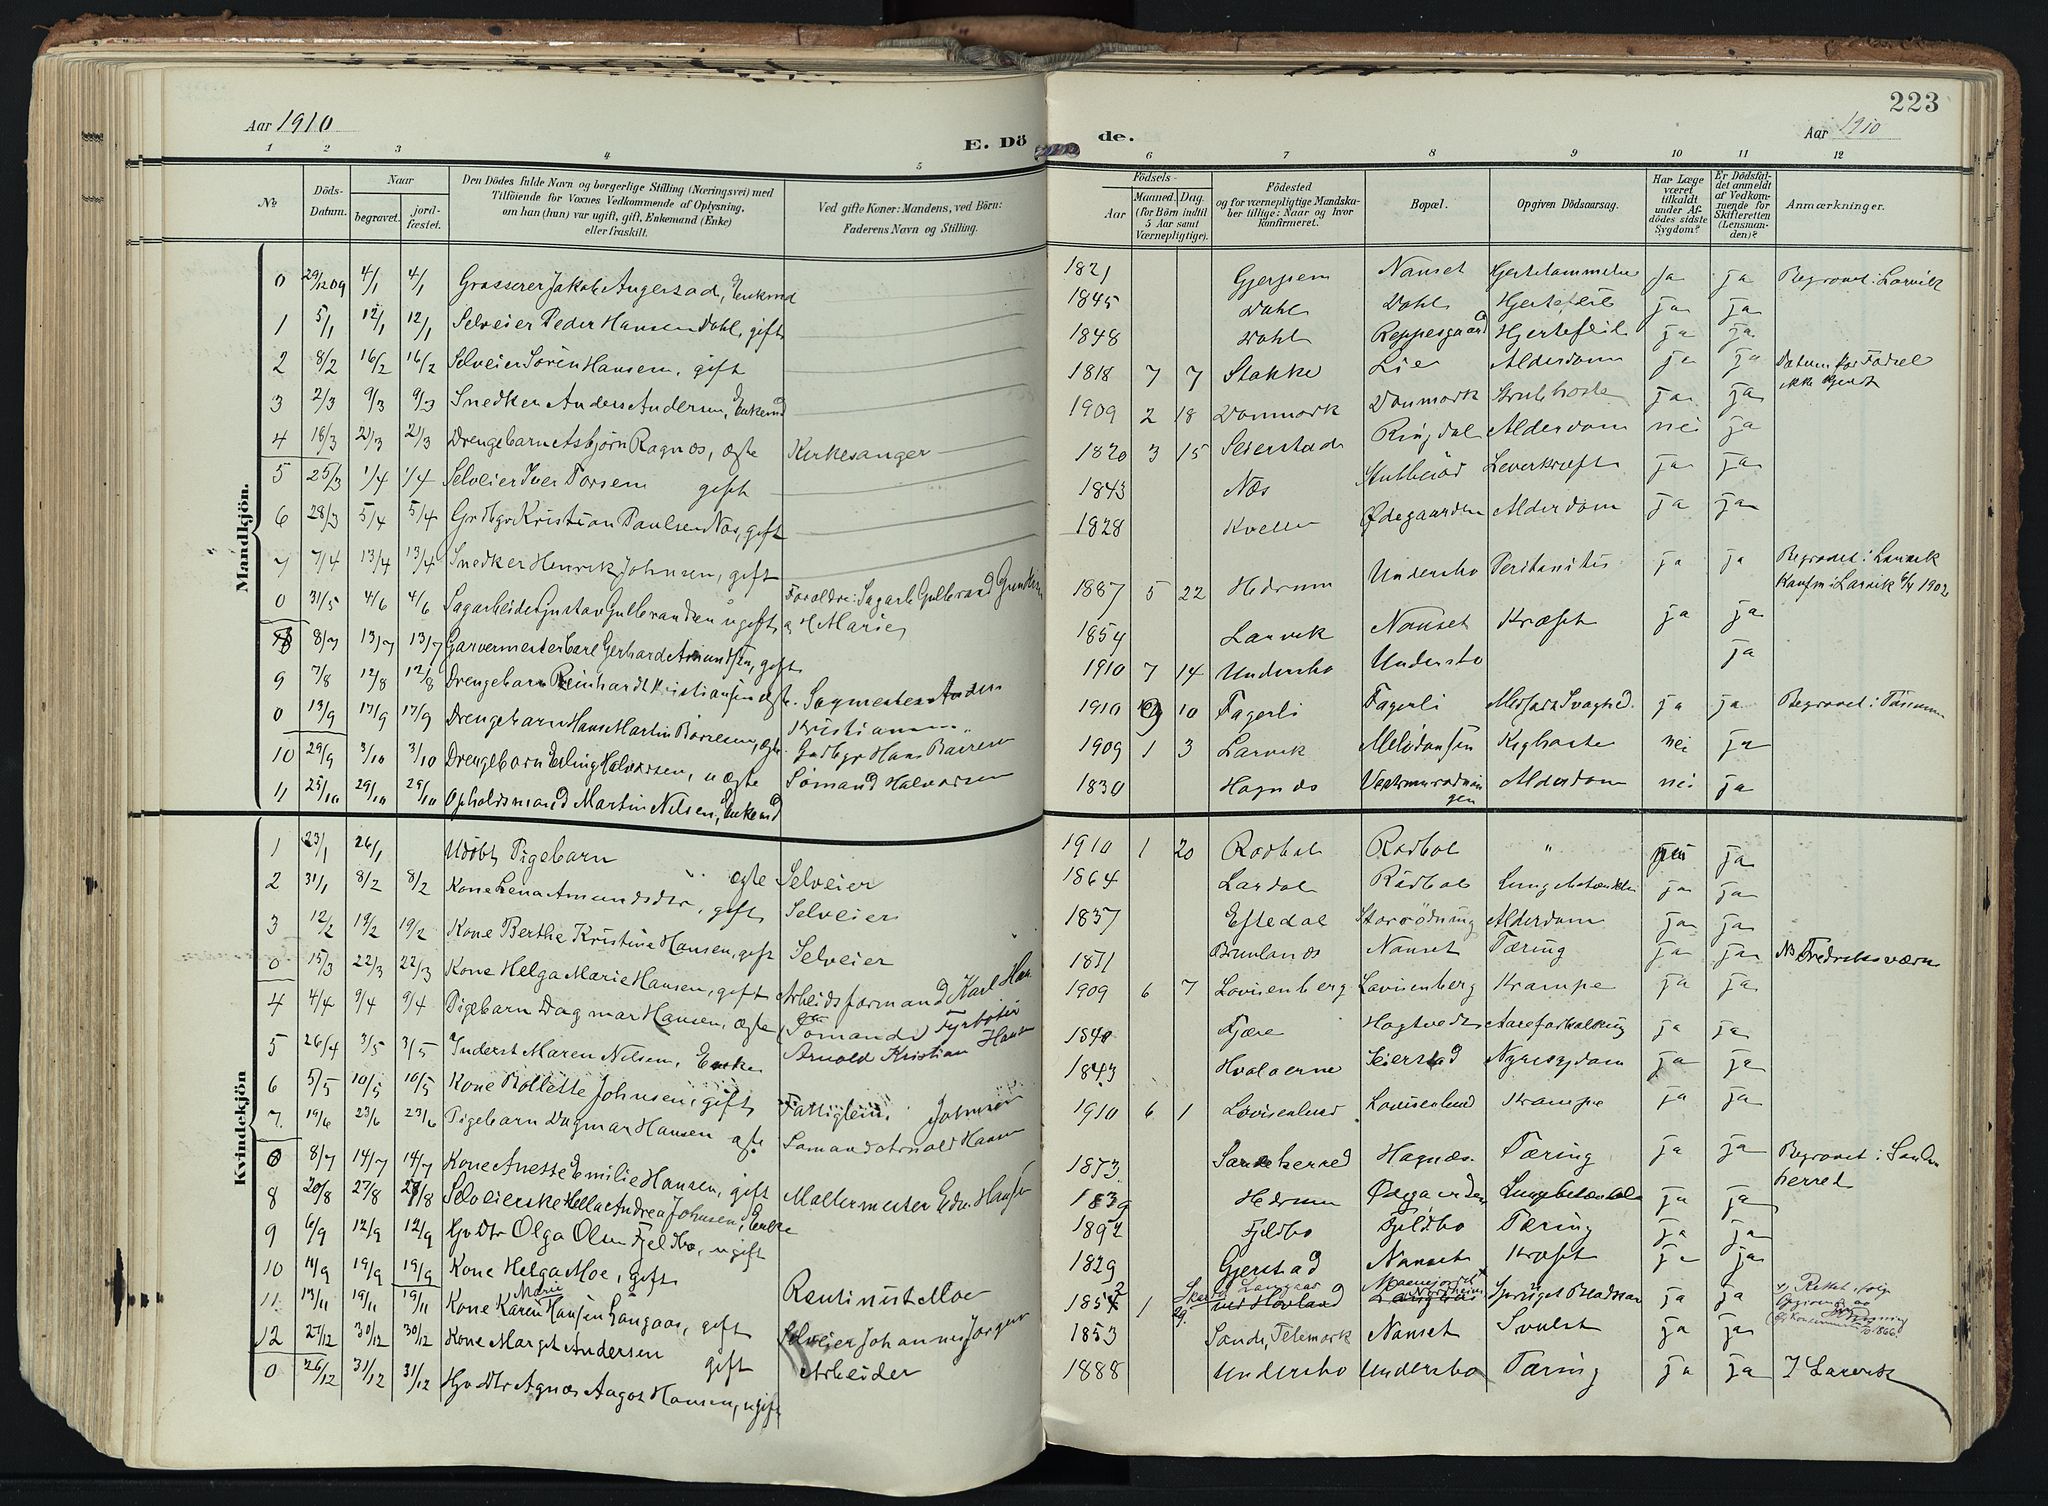 223
Aar 1910
E. Dö
de.
Aar 1910
1 2 3 4 5
6 7 8 9 10 11 12
No
Döds-
Datum.
Naar
begravet.
jord-
fæstet.
Den Dödes fulde Navn og borgerlige Stilling (Næringsvei) med
Tilföiende for Voxnes Vedkommende af Oplysning,
om han (hun) var ugift, gift, Enkemand (Enke)
eller fraskilt.
Ved gifte Koner: Mandens, ved Börn:
Faderens Navn og Stilling.
Födsels-
Aar
Maaned. Dag.
(for Börn indtil
5 Aar samt
Værnepligtige).
Födested
og for værnepligtige Mandska-
ber tillige: Naar og hvor
konfirmeret.
Bopæl.
Opgiven Dödsaarsag.
Har Læge
været
tilkaldt
under Af-
dödes sidste
Sygdom?
Er Dödsfal-
det anmeldt
af Vedkom-
mende for
Skifteretten
(Lensman-
den)?
Anmærkninger.
Mandkjön.
0 29/12 09 4/1 4/1 Grosserer Jakob Enkemd
1 5/1 12/1 12/1 Selveier Peder Hansen Dahl, gift
2 8/2 16/2 16/2 Selveier Sören Hansen, gift
3 2/3 9/3 9/3 Snedker Anders Andersen, Enkemd
4 18/3 21/3 21/3 Drengebarn Asbjörn Ragnos, ægte Kirkesanger
5 25/3 1/4 1/4 Selveier Iver Torsen gift
6 28/3 5/4 5/4 Grdbgr Kristian Paulsen Næs, gift
7 7/4 13/4 13/4 Snedker Henrik Johnsen, gift
0 31/5 4/6 4/6 Sagarbeider Gustav Gulbrandsen ugift Forældre: Sagarb. Gulbrand
Marie
8/7 13/7 13/7 Garvermester Carl Gerhard Amundsen, gift
9 7/8 12/8 12/8 Drengebarn Reinhardt Kristiansen ægte. Sagmester Anders
Kristiansen
0 13/9 17/9 17/9 Drengebarn Hans Martin Börresen, ægte. Gadbgr Hans Börresen
10 29/9 3/10 3/10 Drengebarn Erling Halvorsen, uægte Sömand Halvorsen
11 25/10 29/10 29/10 Opholdsmand Martin Nilsen, Enkemd
1821 Gjerpen Nanset Hjertelammelse ja ja Begravet i Larvik
1845 Dahl Dahl Hjertefeil ja ja
1848 Dahl Reppesgaard Hjertefeil ja ja
1818 7 7 Stokke Lie Alderdom ja ja Datum for Födsel
ikke kjendt
1909 2 18 Danmark Danmark Strubehoste ja ja
1820 3 15 Seierstad Ringdal Alderdom nei ja
1843 Næs Stubberöd Leverkræft ja ja
1828 Kvelle Ødegaarden Alderdom ja ja
1887 5 22 Hedrum Undersbo Peritonitis ja ja Begravet i Larvik
Konfm i Larvik 1902
1854 Larvik Nanset Kræft ja ja
1910 7 14 Undersbo Undersbo ja
1910 10 Fagerli Fagerli Medfödt Svaghed. ja ja Begravet i
1909 1 3 Larvik Kighoste nei ja
1830 Hagnes Alderdom nei ja
Kvindekjön
1 23/1 26/1 Udöbt Pigebarn ægte Selveier
2 31/1 8/2 8/2 Kone Lena Amundsdtr, gift Selveier
3 12/2 19/2 19/2 Kone Berthe Kristine Hansen, gift Selveier
0 15/3 22/3 22/3 Kone Helga Marie Hansen, gift Arbeidsformand Karl Han
4 4/4 9/4 9/4 Pigebarn Dagmar Hansen, ægte (Sömand) Fyrböter
Arnold Kristian Hansen
5 26/4 3/5 3/5 Inderst Maren Nilsen, Enke
6 5/5 10/5 10/5 Kone Bollette Johnsen, gift Fattiglem Johnsen
7. 19/6 23/6 23/6 Pigebarn Dagmar Hansen ægte Sömand Arnold Hansen
0 8/7 14/7 14/7 Kone Anette Emilie Hansen, gift Mallermester Edv. Hansen
8 20/8 27/8 27/8 Selveierske Helle Andrea Johnsen, Enke
9 6/9 12/9 12/9 Gdr Dtr Olga Olsen Fjeldbo, ugift
10 14/9 19/9 19/9 Kone Helga Moe, gift Rentinist Moe
11 13/11 19/11 19/11 Kone Karen Marie Hansen Langaas, gift Selveier Johannes Jorgen
12 27/12 30/12 30/12 Kone Marget Andersen gift Arbeider
0 26/12 31/12 31/12 Gdr Dtr Agnes Aagot Hansen, ugift
1910 1 20 Rödbøl Rödbøl " nei ja
1864 Lardal Rödbøl Lungebetændelse ja ja
1837 Eftedal Storrödning Alderdom ja ja
1871 Brunlanes Nanset Tæring ja ja Fredriksværn
1909 6 7 Lovisenberg Lovisenberg Krampe ja ja
1840 Fjære Hogtvedt Aareforkalkning ja ja
1843 Hvaløerne Seierstad Nyresygdom ja ja
1910 6 1 Lovisenlund Lovisenlund Krampe ja ja
1873 Sandeherred Hagnæs. Tæring ja ja Begravet i Sande
herred
1839 Hedrum Ødegaarden Lungebetændelse ja ja
1892 Fjeldbo Fjeldbo Tæring ja ja
1829 Gjerstad Nanset Kræft ja ja
1852 1 29 Langaas ved Hovland Langaas Sprunget Blodkar ja ja Rettet ifølge
1866.
1853 Sande, Telemark Nanset Svulst ja ja
1888 Undersbo Undersbo Tæring ja ja I Larvik